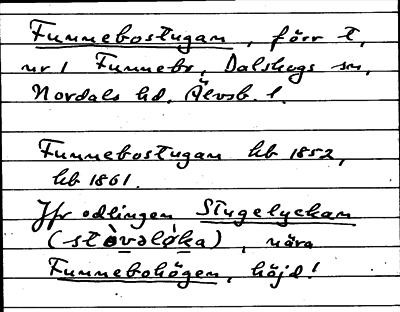 Funnebostugan, förr t.
nr 1 Funnebo, Dalskogs sn,
Nordals hd. Älvsb. l.
Funnebostugan hb 1852,
hb 1861.
Jfr odlingen Stugelyckan
(stòvəlo̢ka), nära
Funnebohögen, höjd!